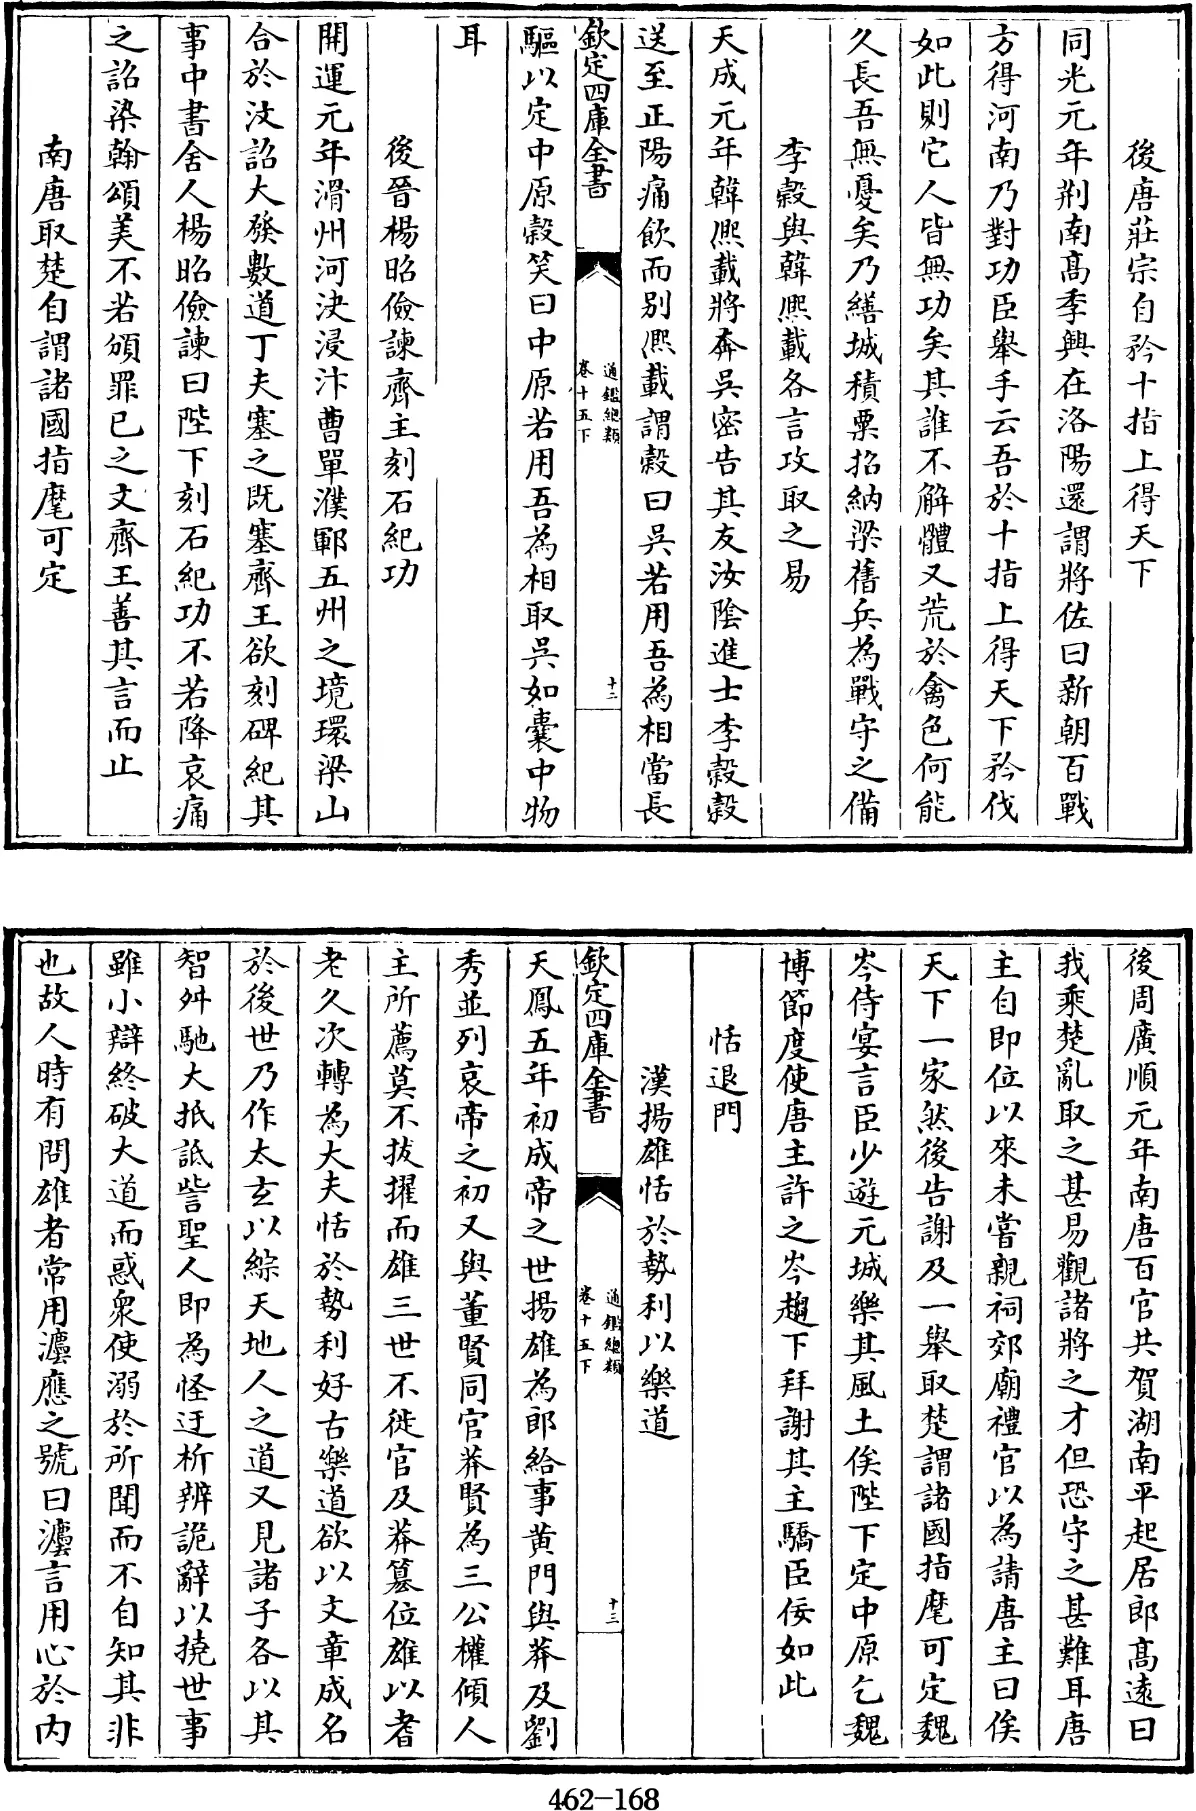 後唐莊宗自矜十指上得天下
同光元年荆南髙季興在洛陽還謂將佐曰新朝百戰
方得河南乃對功臣舉手云吾於十指上得天下矜伐
如此則它人皆無功矣其誰不解體又荒於禽色何能
久長吾無憂矣乃繕城積粟招納梁舊兵為戰守之備
李縠與韓熈載各言攻取之易
天成元年韓熈載將奔吳密告其友汝陰進士李縠縠
送至正陽痛飲而别熈載謂縠曰吳若用吾為相當長
欽定四庫全書
通鑑總類
卷十五下
十二
驅以定中原縠笑曰中原若用吾為相取吳如囊中物
耳
後晉楊昭儉諫齊主刻石紀功
開運元年滑州河決浸汴曹單濮鄆五州之境環梁山
合於汶詔大發數道丁夫塞之既塞齊王欲刻碑紀其
事中書舍人楊昭儉諫曰陛下刻石紀功不若降哀痛
之詔染翰頌美不若頒罪已之文齊王善其言而止
南唐取楚自謂諸國指麾可定
後周廣順元年南唐百官共賀湖南平起居郎髙逺曰
我乘楚亂取之甚易觀諸將之才但恐守之甚難耳唐
主自即位以來未嘗親祠郊廟禮官以為請唐主曰俟
天下一家然後告謝及一舉取楚謂諸國指麾可定魏
岑侍宴言臣少遊元城樂其風土俟陛下定中原乞魏
博節度使唐主許之岑趨下拜謝其主驕臣佞如此
恬退門
漢揚雄恬於勢利以樂道
欽定四庫全書
通鑑總類
卷十五下
十三
天鳳五年初成帝之世揚雄為郎給事黄門與莽及劉
秀並列哀帝之初又與董賢同官莽賢為三公權傾人
主所薦莫不拔擢而雄三世不徙官及莽簒位雄以耆
老久次轉為大夫恬於勢利好古樂道欲以文章成名
於後世乃作太玄以綜天地人之道又見諸子各以其
智舛馳大抵詆訾聖人即為怪迂析辨詭辭以撓世事
雖小辯終破大道而惑衆使溺於所聞而不自知其非
也故人時有問雄者常用灋應之號曰灋言用心於内
462-168